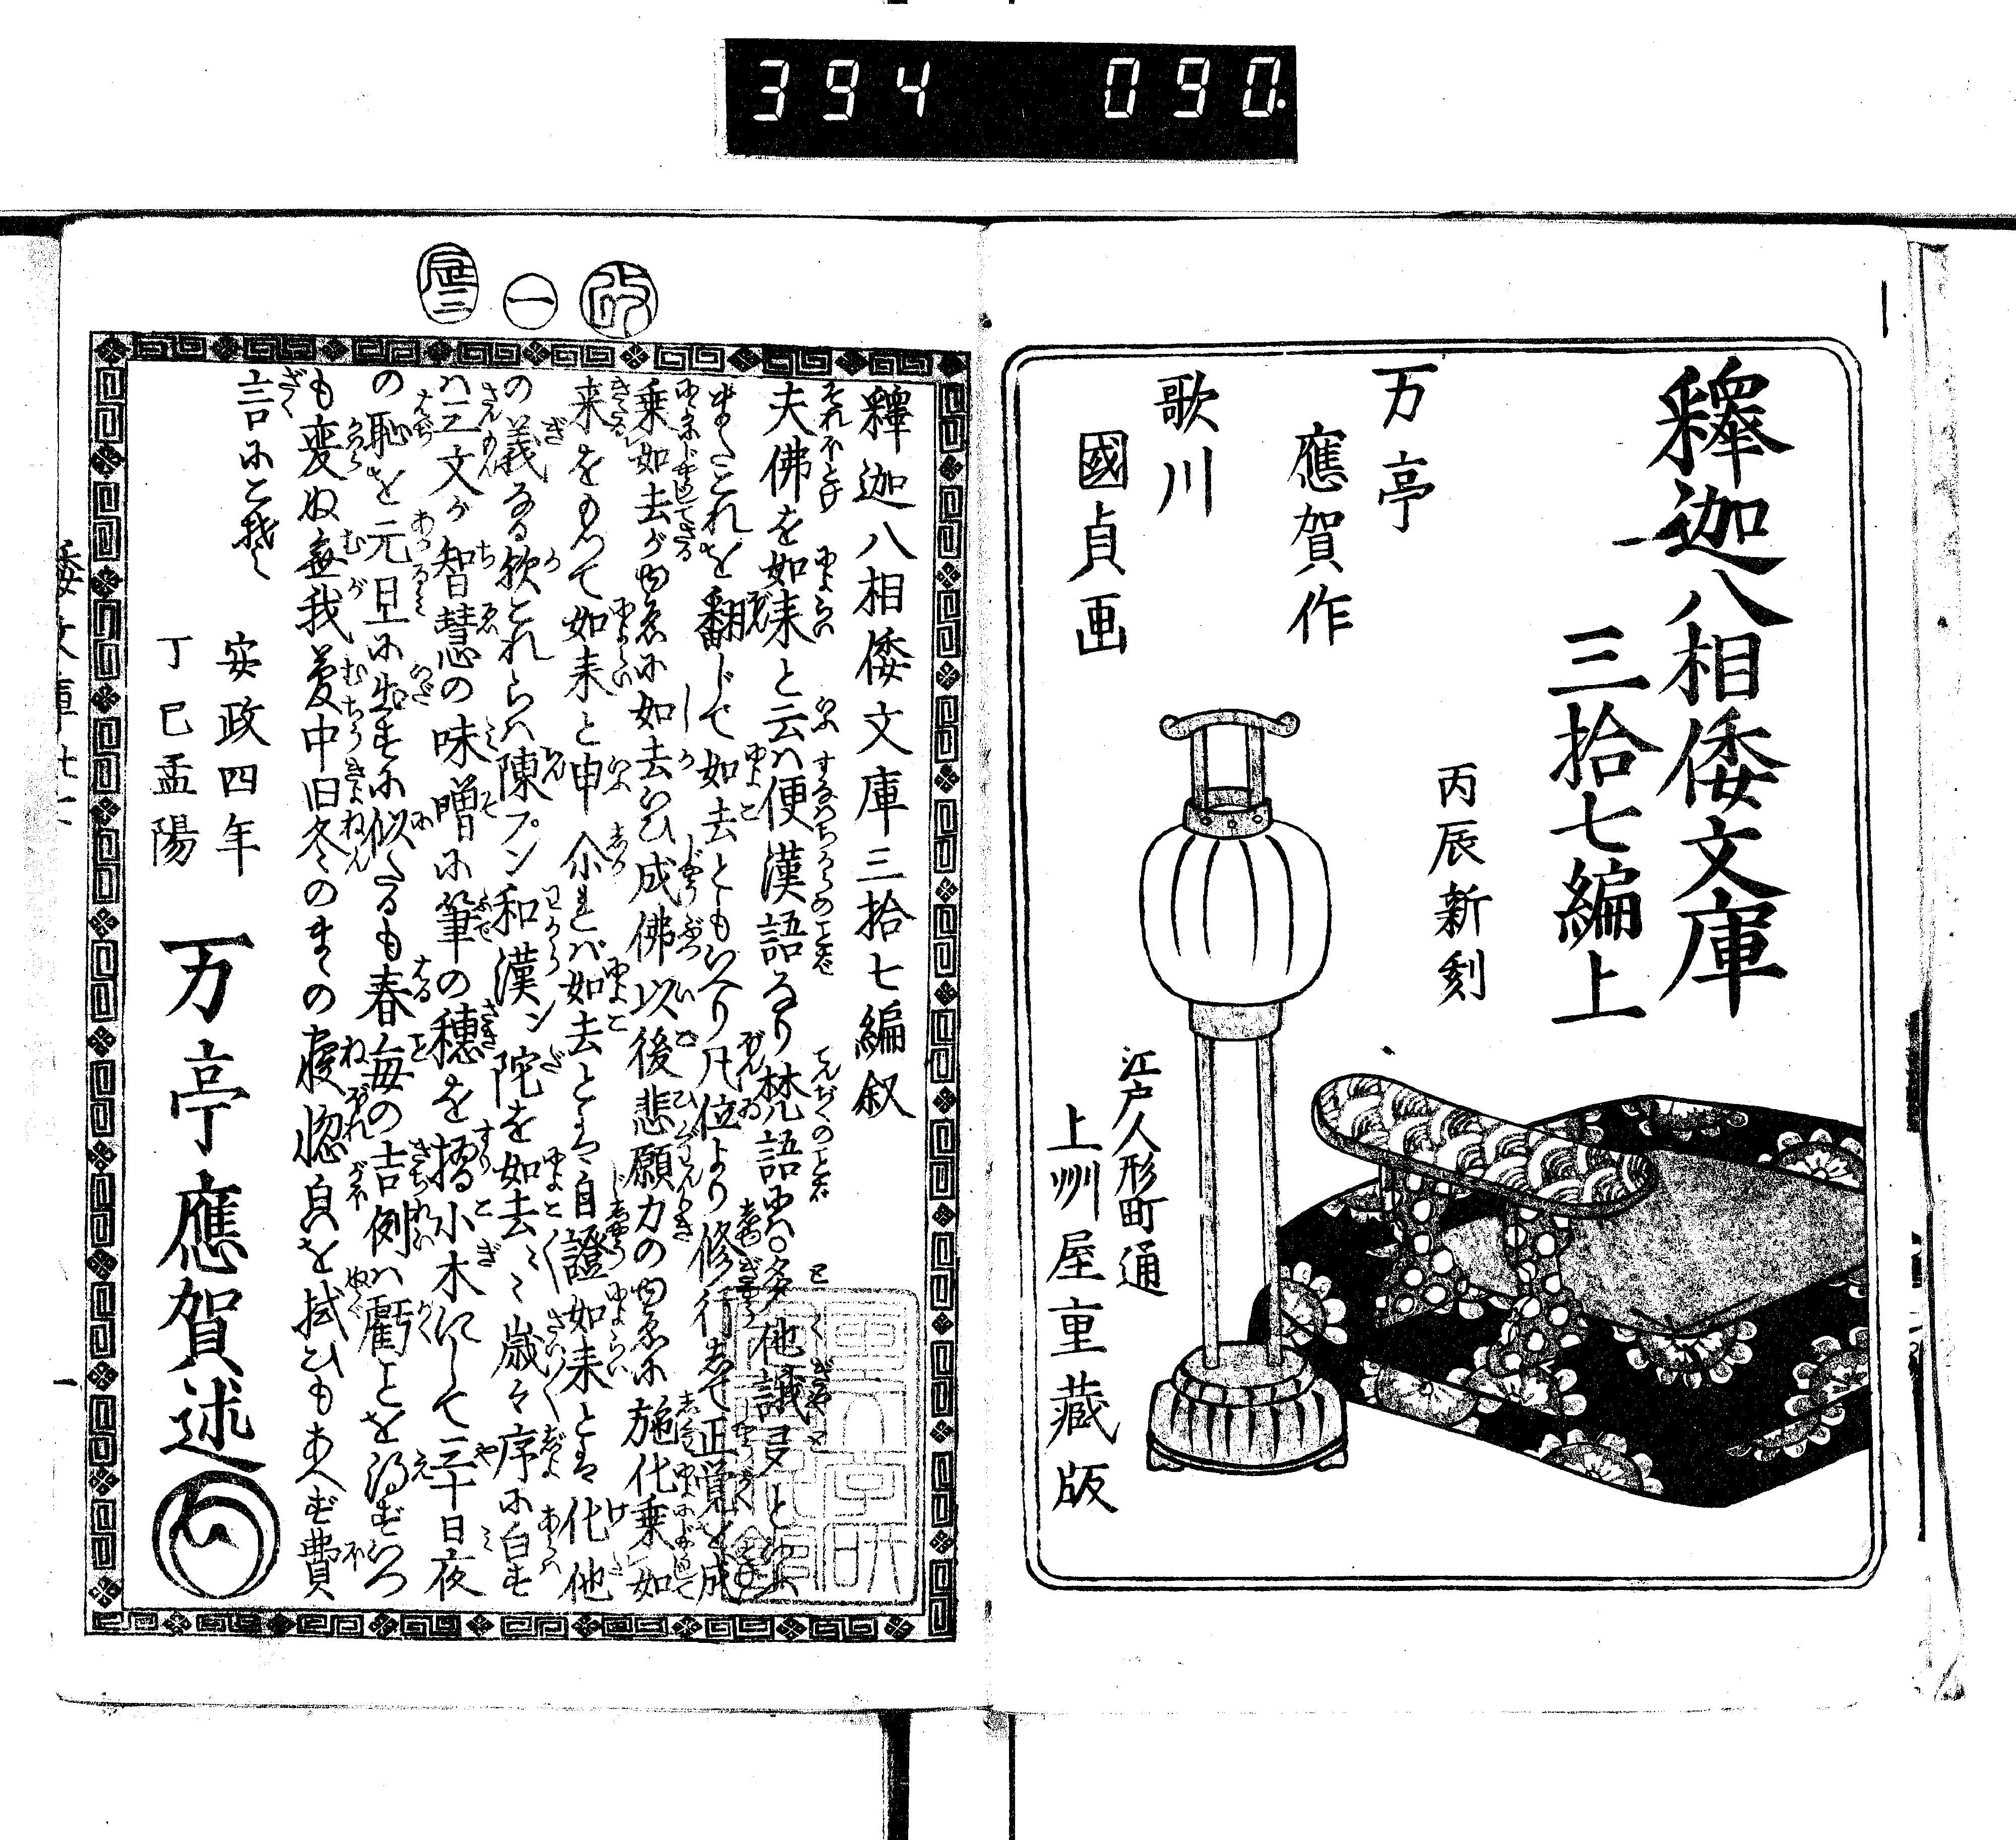 394 090.
釋迦八相倭文庫
三拾七編上
丙辰新刻
万亭
應賀作
歌川
國貞画
江戸人形町通
上州屋重藏版
改
一
釋迦八相倭文庫三拾七編叙
夫佛を如来と云ハ便漢語なり梵語にハ多他
またこれを翻じて如去ともいへり凡位より修行して正覚を成
乗如去がゆゑに如去といひ成佛以後悲願力のゆゑに施化乗如
来をもつて如来と申介されバ如去とは自證如来とは化他
の義なる歟これらハ陳プン和漢ン陀を如去〻〻歳々序に白す
ハ三文が智慧の味噌に筆の穂を摺小木にして三十日夜
の恥を元旦に出すに似たるも春毎の吉例ハ虧ことを得ずいつ
も変ぬ無我夢中旧冬のまゝの寝惚貞を拭ひもあへず費
言にこそ
安政四年
丁巳孟陽
万亭應賀述